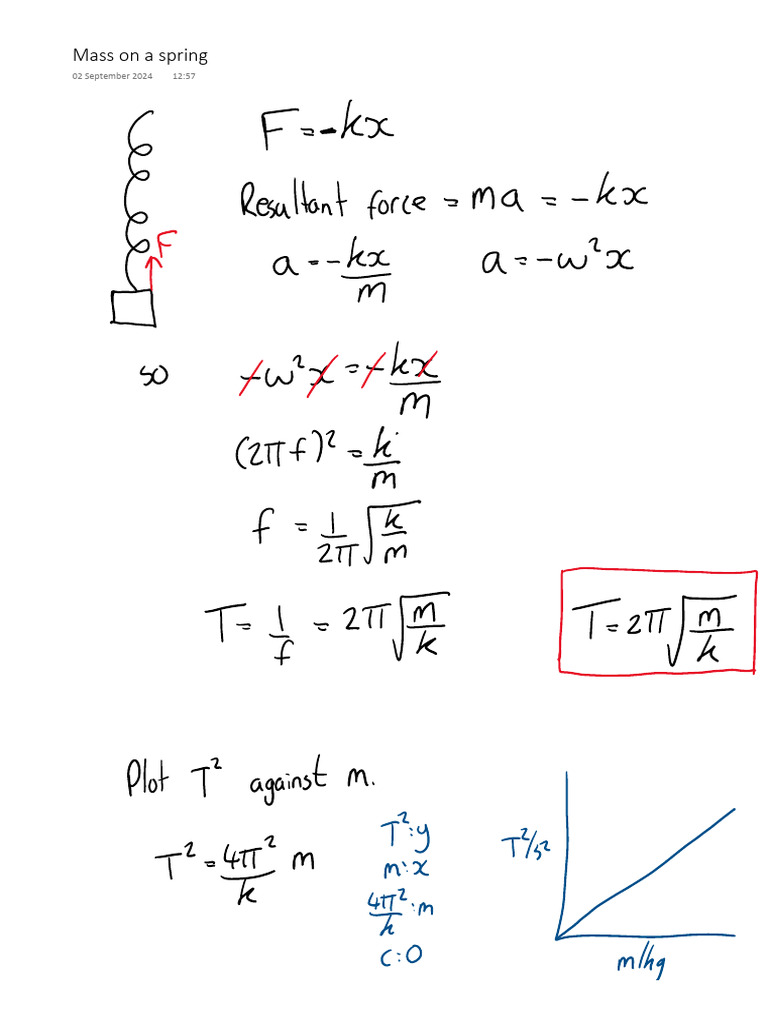 Mass on a spring
02 September 2024 12:57
F = -kx
Resultant force = ma = -kx
F
a = -kx/m a = -ω²x
so -ω²x = -kx/m
(2πf)² = k/m
f = 1/2π √(k/m)
T = 1/f = 2π√(m/k)
T = 2π√(m/k)
Plot T² against m.
T² = 4π²/k m
T²: y
m: x
4π²/k : m
c: 0
T²/s²
m/kg